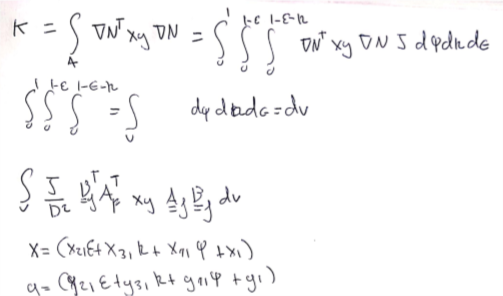 K = ∫_A ∇Nᵀ xy ∇N = ∫₀¹ ∫₀^(1-ε) ∫₀^(1-ε-n) ∇Nᵀ xy ∇N J dφdndε
∫₀¹ ∫₀^(1-ε) ∫₀^(1-ε-n) = ∫_v dφ dndε = dv
∫_v J/D² B_jᵀ A_jᵀ xy A_j B_j dv
x = (x₂₁ε + x₃₁ n + x₄₁ φ + x₁)
y = (y₂₁ ε + y₃₁ n + y₄₁ φ + y₁)